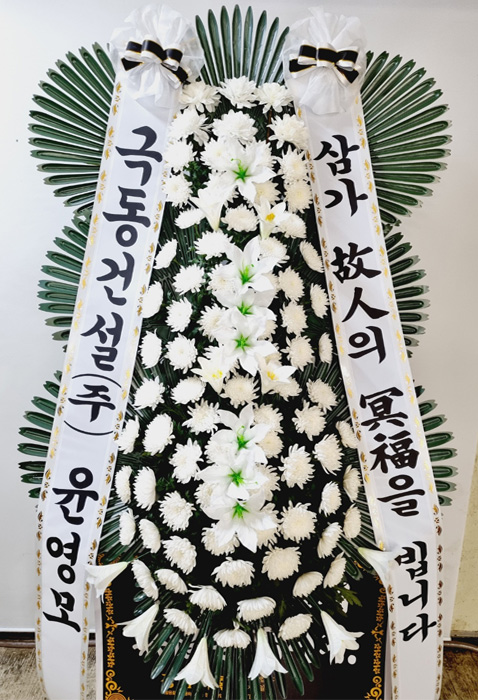 극동건설(주) 윤영모
삼가 故人의 冥福을 빕니다